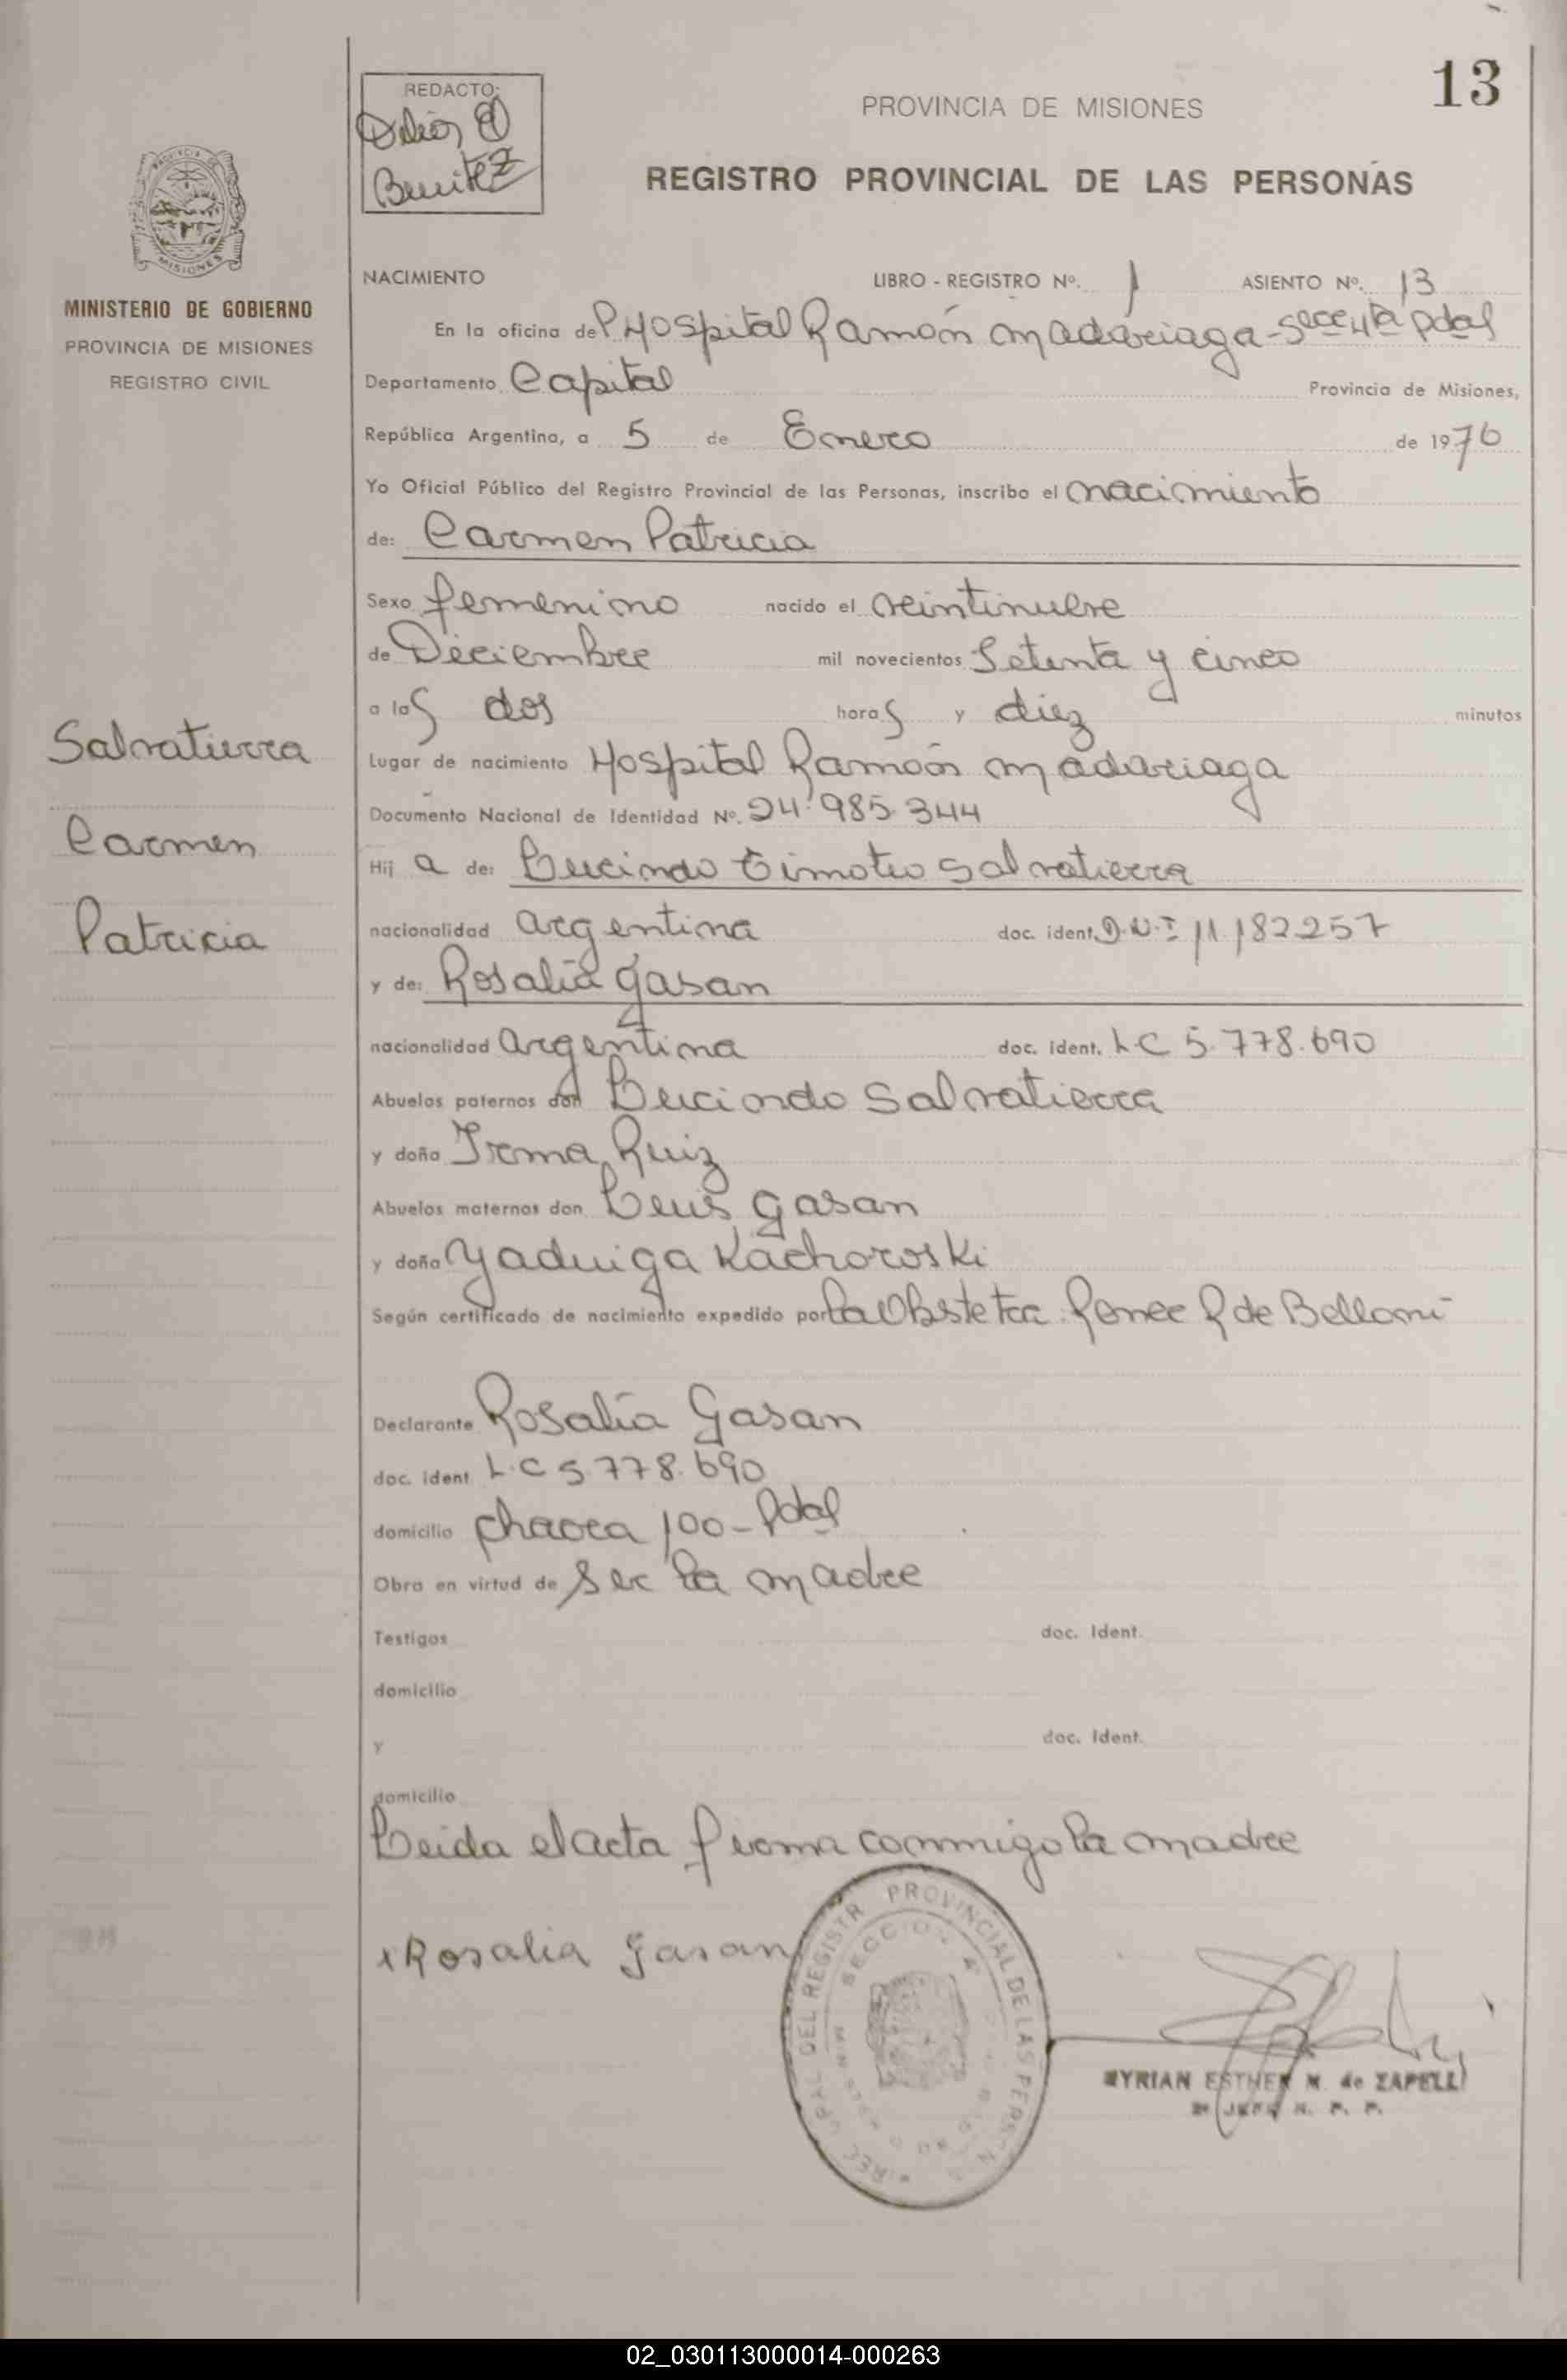 13
REDACTO:
Benitez
PROVINCIA DE MISIONES
REGISTRO PROVINCIAL DE LAS PERSONAS
PROVINCIA DE
MISIONES
MINISTERIO DE GOBIERNO
PROVINCIA DE MISIONES
REGISTRO CIVIL
NACIMIENTO LIBRO - REGISTRO Nº. 1 ASIENTO Nº. 13
En la oficina del Hospital Ramón Madariaga - Secc 4ta pdas
Departamento Capital Provincia de Misiones,
República Argentina, a 5 de Enero de 1976
Yo Oficial Público del Registro Provincial de las Personas, inscribo el nacimiento
de: Carmen Patricia
Sexo femenino nacido el veintinueve
de Diciembre mil novecientos Setenta y cinco
a las dos horas y diez minutos
Salvatierra
Carmen
Patricia
Lugar de nacimiento Hospital Ramón Madariaga
Documento Nacional de Identidad Nº. 24.985.344
Hija de: Lucindo Timoteo Salvatierra
nacionalidad argentina doc. ident. D.N.I 11.182257
y de: Rosalía Gasan
nacionalidad argentina doc. ident. L C 5.778.690
Abuelos paternos don Lucindo Salvatierra
y doña Irma Ruiz
Abuelos maternos don Luis Gasan
y doña Yaduiga Kachoroski
Según certificado de nacimiento expedido por la Obstetra de Belloni
Declarante Rosalía Gasan
doc. ident. L.C 5.778.690
domicilio chacra 100 - Pdas
Obra en virtud de ser la madre
Testigos doc. Ident.
domicilio
y doc. Ident.
domicilio
Leida el acta firma conmigo la madre
x Rosalia Gasan
PROVINCIAL DE LAS PERS
DEL REGISTR
SECCION 4ª
MYRIAN ESTHER M. de ZAPELLI
02_030113000014-000263